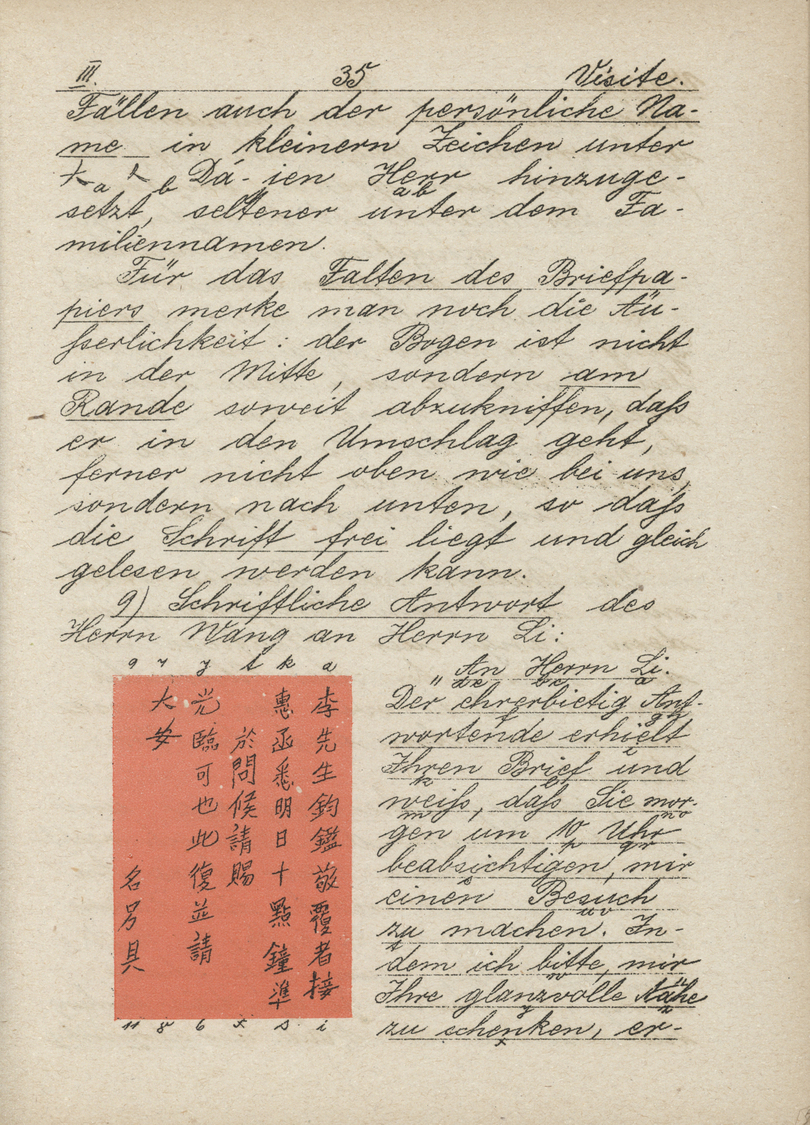 III. 35 Visite.
Fällen auch der persönliche Na-
me in kleinern Zeichen unter
大 a 人 b Dá-jen Herr hinzuge-
a b
setzt, seltener unter dem Fa-
miliennamen.
Für das Falten des Briefpa-
piers merke man noch die Äu-
sserlichkeit: der Bogen ist nicht
in der Mitte, sondern am
Rande soweit abzukniffen, daß
er in den Umschlag geht,
ferner nicht oben wie bei uns,
sondern nach unten, so daß
die Schrift frei liegt und gleich
gelesen werden kann.
9) Schriftliche Antwort des
Herrn Wang an Herrn Li:
a
k
t
y
李先生鈞鑑敬覆者接
惠函悉明日十點鐘準
於問候請賜
光臨可也此復並請
大安
名另具
i
s
x
6
8
11
"An Herrn Li.
Der ehrerbietig Ant-
wortende erhielt
Ihren Brief und
weiß, daß Sie mor-
gen um 10 Uhr
beabsichtigen, mir
einen Besuch
zu machen. In-
dem ich bitte, mir
Ihre glanzvolle Nähe
zu schenken, er-